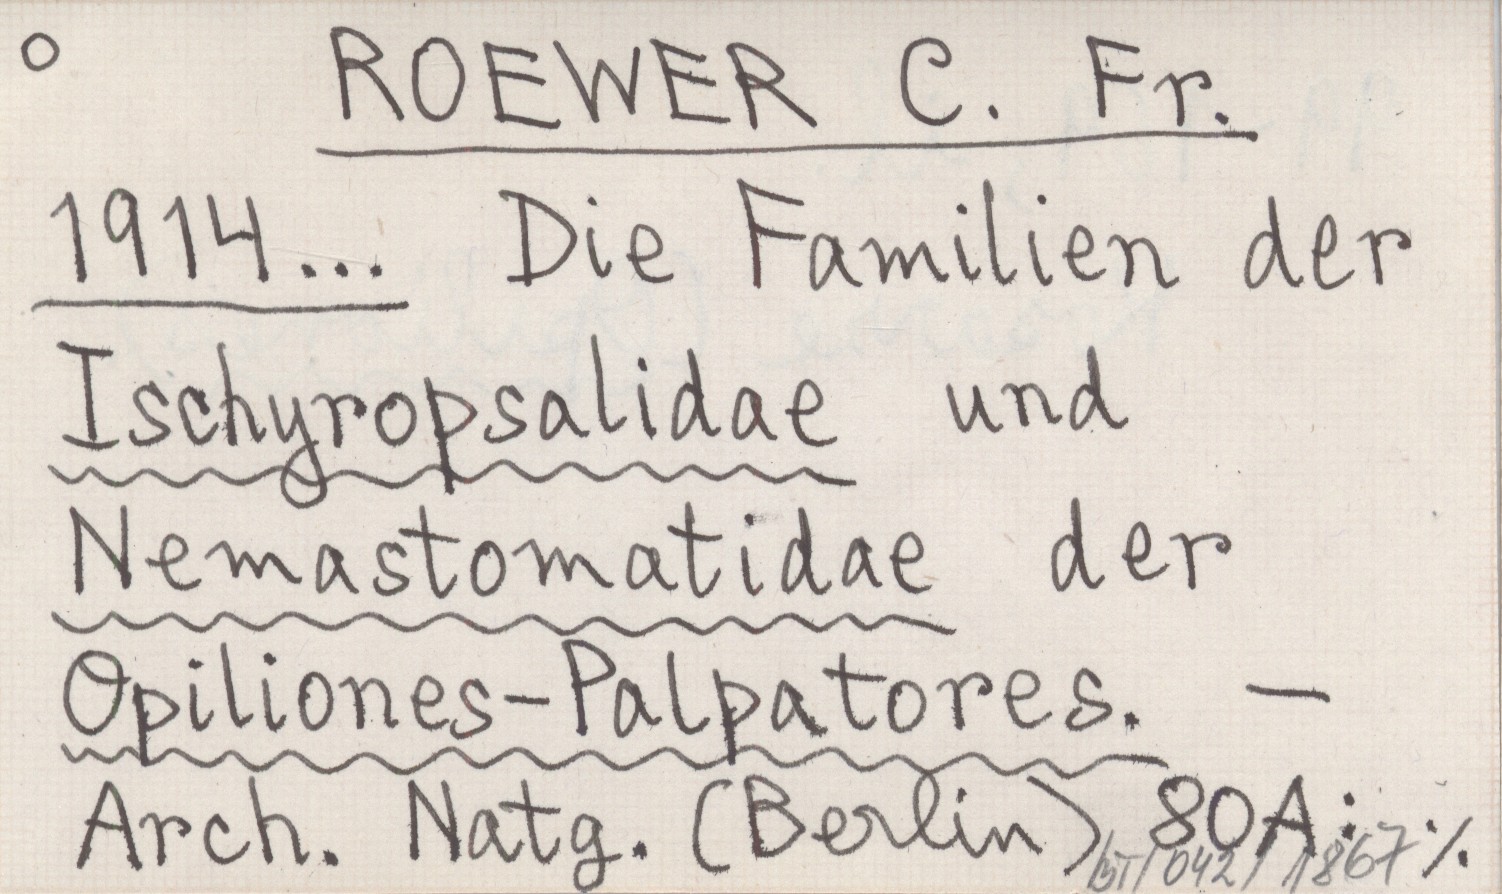 ROEWER C. Fr.
1914... Die Familien der
Ischyropsalidae und
Nemastomatidae der
Opiliones-Palpatores. —
Arch. Natg. (Berlin) 80A: ·/.
BT/042/1867